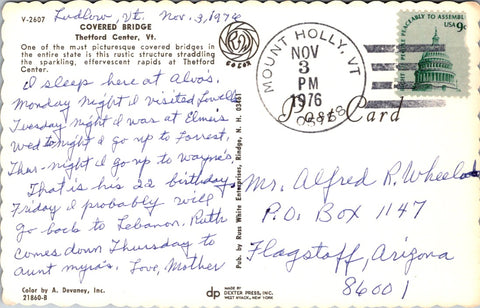 Ludlow, Vt. Nov. 3, 1976
V-2607
COVERED BRIDGE
Thetford Center, Vt.
One of the most picturesque covered bridges in
the entire state is this rustic structure straddling
the sparkling, effervescent rapids at Thetford
Center.
COLOR
I sleep here at Alva's.
Monday night I visited Lowell
Tuesday night I was at Elmer's
Wed tonight I go up to Forrest,
Thur-night I go up to Wayne's
That is his 22 birthday.
Friday I probably will
go back to Lebanon. Ruth
comes down Thursday to
aunt Myra's. Love, Mother
Color by A. Devaney, Inc.
21860-B
Pub. by Ross White Enterprises, Rindge, N. H. 03461
dp
MADE BY
DEXTER PRESS, INC.
WEST NYACK, NEW YORK
MOUNT HOLLY, VT
NOV
3
PM
1976
Post Card
PEOPLE PEACEABLY TO ASSEMBLE
USA 9c
Mr. Alfred R. Wheeler
P.O. Box 1147
Flagstaff, Arizona
86001